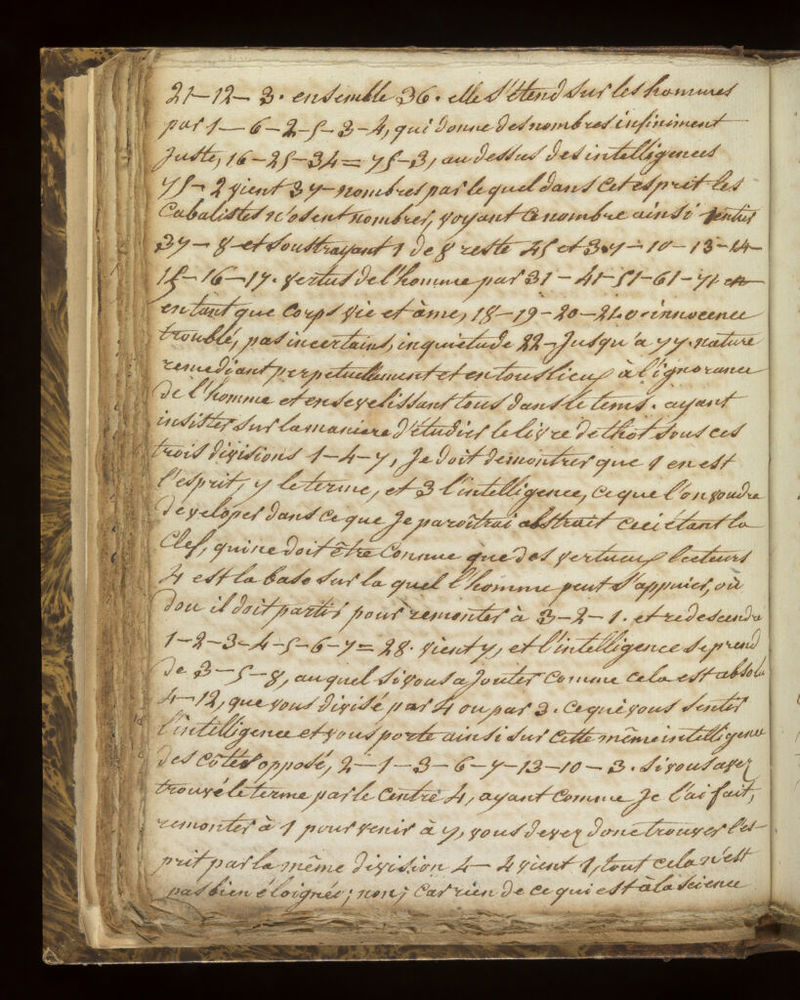 21—12— 3. ensemble 36. elle s'étend sur les hommes
par 1— 6—2—5—3—4, qui donne des nombres infiniment
juste, 16—25—34= 75—3, au dessus des intelligences
75— 2 vient 37—nombres par le quel dans cet esprit les
Cabalistes n'osent nombrer, voyant ce nombre ainsi
37— 8 et soustrayant 1 de 8 reste 45 et 3.7—10—13—14—
15—16—17. vertus de l'homme par 31—41—51—61—71
en tant que corps vie et âme, 18—19—20—21.0. innocence
troublé, pas incertains, inquietude 22—jusqu'a 77. nature
remediant perpetuellement et en tous lieux à l'ignorance
de l'homme et ensevelissant tous dans le tems. ayant
insister sur la maniere d'étudier le livre de thot sous ces
trois divisions 1—4—7, je doit demontrer que 1 en est
l'esprit, 7 le terme, et 3 l'intelligence, ce que l'on voudra
developer dans ce que je paroîtrai abstrait ceci étant la
Clef, qui ne doit être connue que des vertueux lecteurs
4 est la base sur la quel l'homme peut s'appuier, où
dou il doit partir pour remonter à 3—2—1. et redescendre
1—2—3—4—5—6—7=28. vient 7, et l'intelligence se prend
de 3—5—8, auquel si vous ajouter comme cela est absolu
4—12, que vous divisé par 4 ou par 3. ce qui vous senter
l'intelligence et vous porte ainsi sur cette même intelligence
des côtés opposé, 2—1—3—6—7—13—10—3. si vous avez
trouvé le terme par le centre 4, ayant comme je l'ai fait,
remonter à 1 pour venir à 7, vous devez donc trouver l'es-
prit par la même division 4—4 vient 1, tout cela n'est
pas bien éloignée; non; car rien de ce qui est à la science